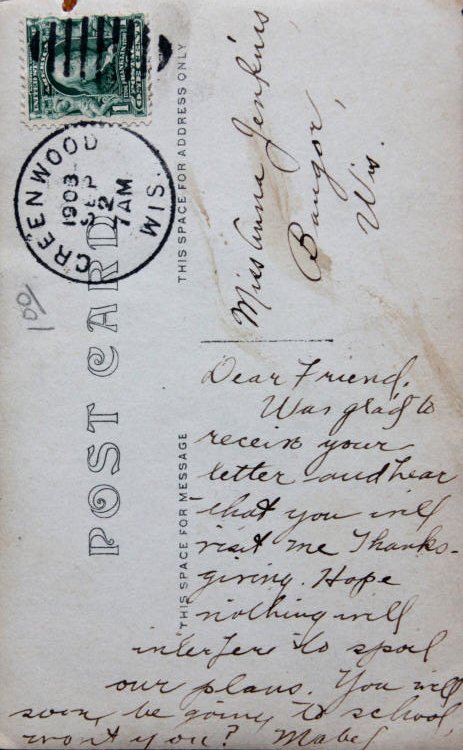 GREENWOOD
WIS.
1908
SEP
2
7 AM
1
POST CARD
THIS SPACE FOR ADDRESS ONLY
Miss Anna Jenkins
Bangor,
Wis.
THIS SPACE FOR MESSAGE
Dear Friend.
Was glad to
receive your
letter and hear
that you will
visit me Thanks-
giving. Hope
nothing will
interfere to spoil
our plans. You will
soon be going to school
wont you? Mabel